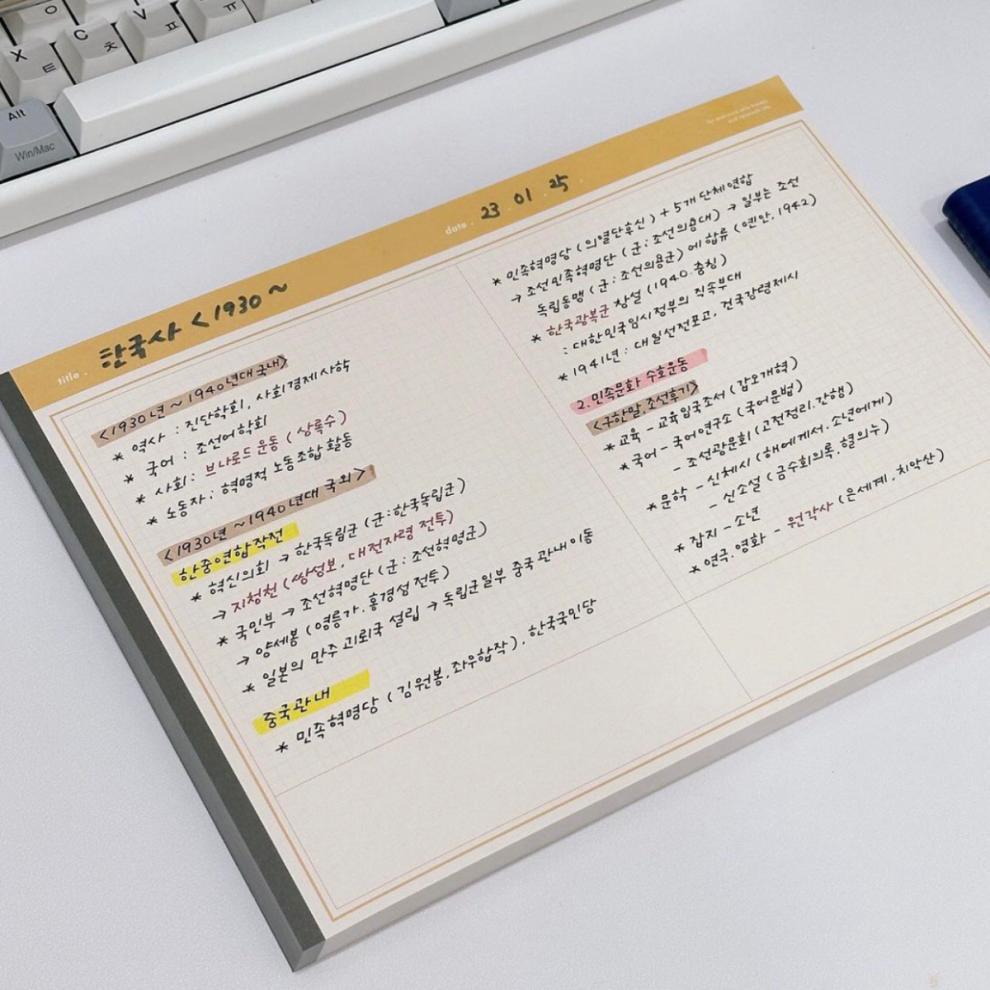 ㅇ
X ㅌ
C ㅊ
V ㅍ
ㅠ
Alt
Win/Mac
title .
한국사 <1930 ~
date .
23 . 01 . 25
<1930년 ~ 1940년대 국내>
* 역사 : 진단학회, 사회경제사학
* 국어 : 조선어학회
* 사회 : 브나로드 운동 ( 상록수 )
* 노동자 : 혁명적 노동조합 활동
<1930년 ~1940년대 국외>
한중연합작전
* 혁신의회 → 한국독립군 (군:한국독립군)
→ 지청천 (쌍성보, 대전자령 전투)
* 국민부 → 조선혁명단 (군: 조선혁명군)
→ 양세봉 (영릉가, 흥경성 전투)
* 일본의 만주 괴뢰국 설립 → 독립군일부 중국 관내 이동
중국관내
* 민족혁명당 ( 김원봉, 좌우합작), 한국국민당
* 민족혁명당 ( 의열단후신 ) + 5개 단체연합
→ 조선민족혁명단 (군:조선의용대) → 일부는 조선
독립동맹 (군:조선의용군) 에 합류 (옌안, 1942)
* 한국광복군 창설 (1940. 충칭)
: 대한민국임시정부의 직속부대
* 1941년 : 대일선전포고, 건국강령제시
2. 민족문화 수호운동
<구한말, 조선후기>
* 교육 - 교육입국조서 (갑오개혁)
* 국어 - 국어연구소 (국어문법)
- 조선광문회 (고전정리, 간행)
* 문학 - 신체시 (해에게서, 소년에게)
- 신소설 (금수회의록, 혈의누)
* 잡지 - 소년
* 연극.영화 - 원각사 (은세계, 치악산)